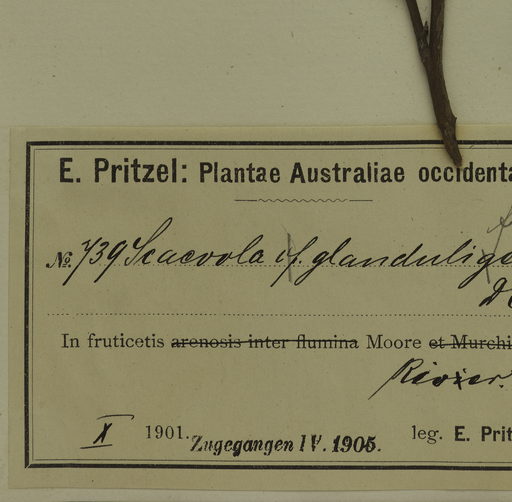 E. Pritzel: Plantae Australiae occidenta
№ 739 Scaevola cf. glandulig
In fruticetis arenosis inter flumina Moore et Murchi
River.
X 1901. Zugegangen IV. 1905. leg. E. Prit